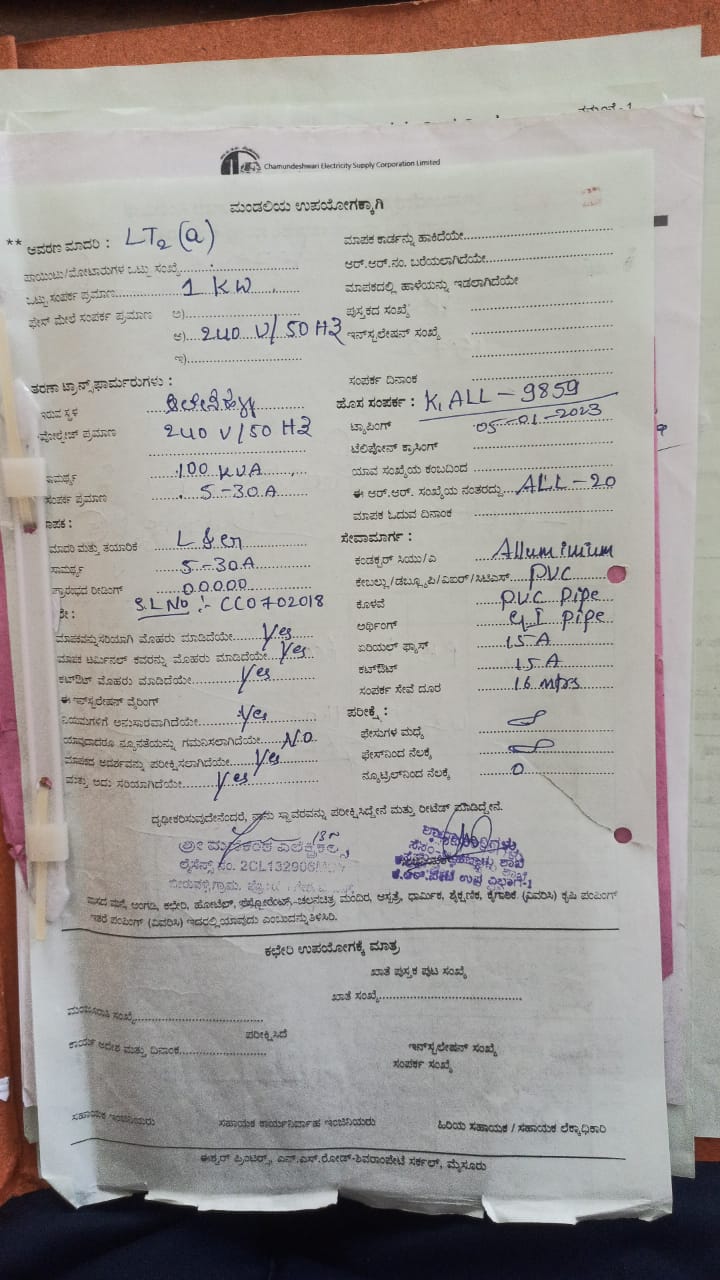 ನಮೂನೆ - 1
Chamundeshwari Electricity Supply Corporation Limited
ಮಂಡಲಿಯ ಉಪಯೋಗಕ್ಕಾಗಿ
** ಆವರಣ ಮಾದರಿ : LT2 (a)
ಪಾಯಿಂಟು/ಮೋಟಾರುಗಳ ಒಟ್ಟು ಸಂಖ್ಯೆ
ಒಟ್ಟು ಸಂಪರ್ಕ ಪ್ರಮಾಣ 1 KW
ಫೇಸ್ ಮೇಲೆ ಸಂಪರ್ಕ ಪ್ರಮಾಣ ಅ)
ಆ) 240 V/50 HZ
ಇ)
ಮಾಪಕ ಕಾರ್ಡನ್ನು ಹಾಕಿದೆಯೇ
ಆರ್.ಆರ್.ನಂ. ಬರೆಯಲಾಗಿದೆಯೇ
ಮಾಪಕದಲ್ಲಿ ಹಾಳೆಯನ್ನು ಇಡಲಾಗಿದೆಯೇ
ಪುಸ್ತಕದ ಸಂಖ್ಯೆ
ಇನ್‌ಸ್ಟಲೇಷನ್ ಸಂಖ್ಯೆ
ಸಂಪರ್ಕ ದಿನಾಂಕ
ತರಣಾ ಟ್ರಾನ್ಸ್‌ಫಾರ್ಮರುಗಳು :
ಇರುವ ಸ್ಥಳ
ವೋಲ್ಟೇಜ್ ಪ್ರಮಾಣ 240 V/50 HZ
ಸಾಮರ್ಥ್ಯ 100 KVA
ಸಂಪರ್ಕ ಪ್ರಮಾಣ 5-30A
ಮಾಪಕ :
ಮಾದರಿ ಮತ್ತು ತಯಾರಿಕೆ
ಸಾಮರ್ಥ್ಯ 5-30A
ಪ್ರಾರಂಭದ ರೀಡಿಂಗ್ 00000
S.L No :- CC0702018
ಮಾಪಕವನ್ನು ಸರಿಯಾಗಿ ಮೊಹರು ಮಾಡಿದೆಯೇ Yes
ಮಾಪಕ ಟರ್ಮಿನಲ್ ಕವರನ್ನು ಮೊಹರು ಮಾಡಿದೆಯೇ Yes
ಕಟ್‌ಔಟ್ ಮೊಹರು ಮಾಡಿದೆಯೇ Yes
ಈ ಇನ್‌ಸ್ಟಲೇಷನ್ ವೈರಿಂಗ್
ನಿಯಮಗಳಿಗೆ ಅನುಸಾರವಾಗಿದೆಯೇ Yes
ಯಾವುದಾದರೂ ನ್ಯೂನತೆಯನ್ನು ಗಮನಿಸಲಾಗಿದೆಯೇ No
ಮಾಪಕದ ಆದರ್ಶವನ್ನು ಪರೀಕ್ಷಿಸಲಾಗಿದೆಯೇ Yes
ಮತ್ತು ಅದು ಸರಿಯಾಗಿದೆಯೇ Yes
ಹೊಸ ಸಂಪರ್ಕ : K, ALL - 9859
ಟ್ಯಾಪಿಂಗ್ 05-01-2023
ಟೆಲಿಫೋನ್ ಕ್ರಾಸಿಂಗ್
ಯಾವ ಸಂಖ್ಯೆಯ ಕಂಬದಿಂದ
ಈ ಆರ್.ಆರ್. ಸಂಖ್ಯೆಯ ನಂತರದ್ದು ALL-20
ಮಾಪಕ ಓದುವ ದಿನಾಂಕ
ಸೇವಾಮಾರ್ಗ :
ಕಂಡಕ್ಟರ್ ಸಿಯು/ಎ Alluminium
ಕೇಬಲ್ಲು/ಡಬ್ಲ್ಯೂಪಿ/ಎಐಆರ್/ಸಿಟಿಎಸ್ PVC
ಕೊಳವೆ PVC Pipe
ಅರ್ಥಿಂಗ್ G.I Pipe
ಏರಿಯಲ್ ಫ್ಯೂಸ್ 15 A
ಕಟ್‌ಔಟ್ 15 A
ಸಂಪರ್ಕ ಸೇವೆ ದೂರ 16 mtrs
ಪರೀಕ್ಷೆ :
ಫೇಸುಗಳ ಮಧ್ಯೆ
ಫೇಸ್‌ನಿಂದ ನೆಲಕ್ಕೆ
ನ್ಯೂಟ್ರಲ್‌ನಿಂದ ನೆಲಕ್ಕೆ 0
ದೃಢೀಕರಿಸುವುದೇನೆಂದರೆ, ನಾನು ಸ್ಥಾವರವನ್ನು ಪರೀಕ್ಷಿಸಿದ್ದೇನೆ ಮತ್ತು ರೀಟೆಡ್ ಮಾಡಿದ್ದೇನೆ.
ಲೈಸೆನ್ಸ್ ನಂ. 2CL132908
ವಾಸದ ಮನೆ, ಅಂಗಡಿ, ಕಛೇರಿ, ಹೋಟೆಲ್, ರೆಸ್ಟೋರೆಂಟ್, ಚಲನಚಿತ್ರ ಮಂದಿರ, ಆಸ್ಪತ್ರೆ, ಧಾರ್ಮಿಕ, ಶೈಕ್ಷಣಿಕ, ಕೈಗಾರಿಕೆ (ವಿವರಿಸಿ) ಕೃಷಿ ಪಂಪಿಂಗ್
ಇತರೆ ಪಂಪಿಂಗ್ (ವಿವರಿಸಿ) ಇದರಲ್ಲಿ ಯಾವುದು ಎಂಬುದನ್ನು ತಿಳಿಸಿರಿ.
ಕಛೇರಿ ಉಪಯೋಗಕ್ಕೆ ಮಾತ್ರ
ಖಾತೆ ಪುಸ್ತಕ ಪುಟ ಸಂಖ್ಯೆ
ಖಾತೆ ಸಂಖ್ಯೆ
ಮಂಜೂರಾತಿ ಸಂಖ್ಯೆ
ಪರೀಕ್ಷಿಸಿದೆ
ಕಾರ್ಯ ಆದೇಶ ಮತ್ತು ದಿನಾಂಕ
ಇನ್‌ಸ್ಟಲೇಷನ್ ಸಂಖ್ಯೆ
ಸಂಪರ್ಕ ಸಂಖ್ಯೆ
ಸಹಾಯಕ ಇಂಜಿನಿಯರು ಸಹಾಯಕ ಕಾರ್ಯನಿರ್ವಾಹ ಇಂಜಿನಿಯರು ಹಿರಿಯ ಸಹಾಯಕ / ಸಹಾಯಕ ಲೆಕ್ಕಾಧಿಕಾರಿ
ಈಶ್ವರ್ ಪ್ರಿಂಟರ್ಸ್, ಎನ್.ಎಸ್.ರೋಡ್-ಶಿವರಾಂಪೇಟೆ ಸರ್ಕಲ್, ಮೈಸೂರು